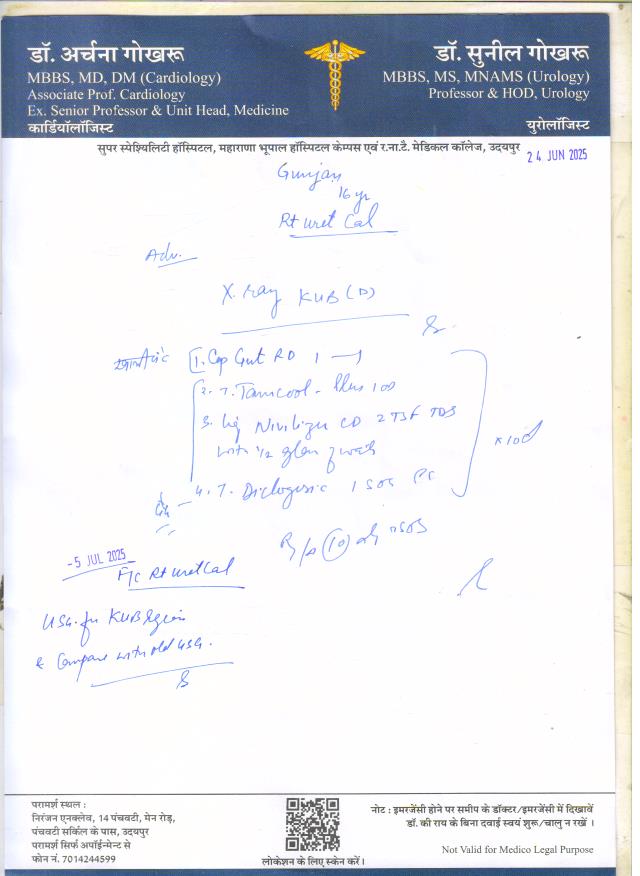 डॉ. अर्चना गोखरू
MBBS, MD, DM (Cardiology)
Associate Prof. Cardiology
Ex. Senior Professor & Unit Head, Medicine
कार्डियॉलॉजिस्ट
डॉ. सुनील गोखरू
MBBS, MS, MNAMS (Urology)
Professor & HOD, Urology
युरोलॉजिस्ट
सुपर स्पेश्यिलिटी हॉस्पिटल, महाराणा भूपाल हॉस्पिटल केम्पस एवं र.ना.टै. मेडिकल कॉलेज, उदयपुर
24 JUN 2025
Gunjan
16 yr
Rt uret Cal
Adv.
X-ray KUB (D)
1. Cap Gut RD 1
2. T. Tamcool - Plus 100
3. Liq CD 2 TSF TDS
with 1/2 glass water
4. T. Diclogesic 1 SOS PC
x 10d
10 SOS
-5 JUL 2025
F/c Rt uret Cal
USG for KUB region
& Compare with old USG.
परामर्श स्थल :
निरंजन एनक्लेव, 14 पंचवटी, मेन रोड़,
पंचवटी सर्किल के पास, उदयपुर
परामर्श सिर्फ अपॉईन्मेन्ट से
फोन नं. 7014244599
लोकेशन के लिए स्केन करें।
नोट : इमरजेंसी होने पर समीप के डॉक्टर/इमरजेंसी में दिखावें
डॉ. की राय के बिना दवाई स्वयं शुरू/चालु न रखें ।
Not Valid for Medico Legal Purpose